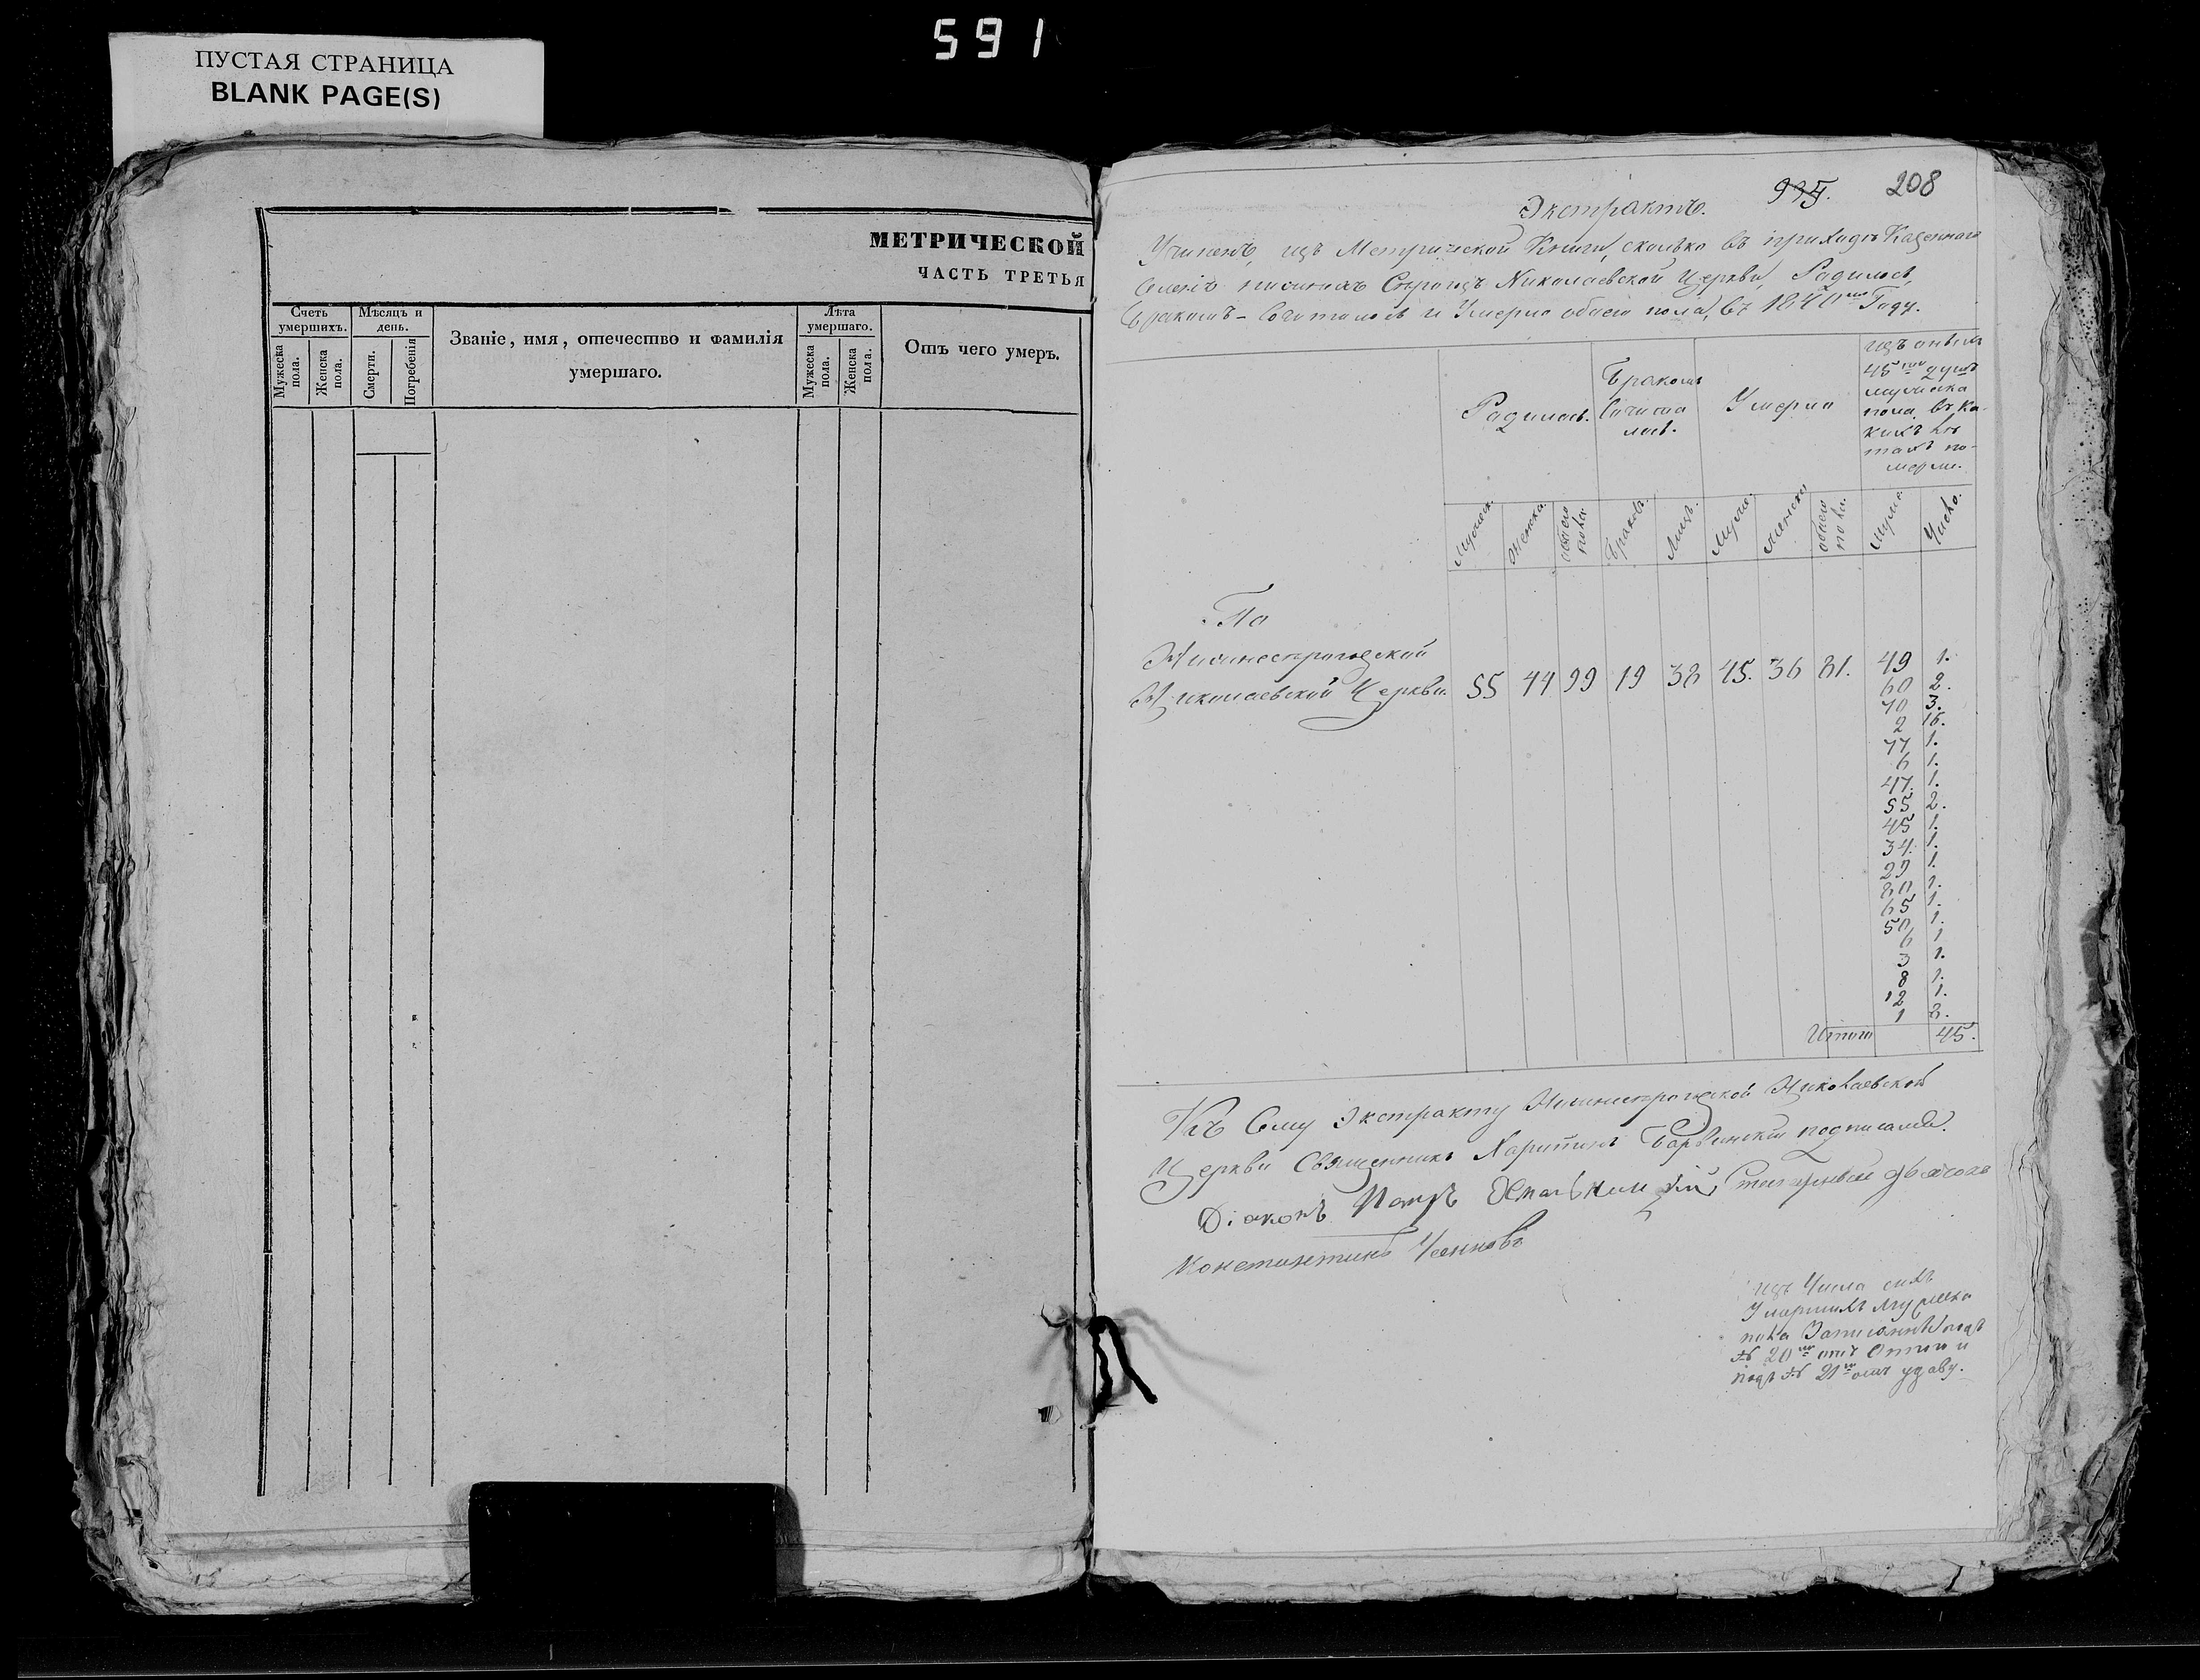 591
ПУСТАЯ СТРАНИЦА
BLANK PAGE(S)
МЕТРИЧЕСКОЙ
ЧАСТЬ ТРЕТЬЯ
Счетъ умершихъ.
Мужеска пола.
Женска пола.
Мѣсяцъ и день.
Смерти.
Погребенія
Званіе, имя, отечество и фамилія
умершаго.
Лѣта умершаго.
Мужеска пола.
Женска пола.
Отъ чего умеръ.
208
Экстрактъ.
Учиненъ, изъ Метрической Книги, сколько въ приходѣ Казеннаго
Николаевской Церкви, Родилось,
Бракомъ - Сочеталось и Умерло обоего пола, въ 1840мъ Году.
Родилось.
Бракомъ
Сочета
лось.
Умерло
изъ онихъ
45ти душъ
мужеска
пола, въ ка-
кихъ лѣ
тахъ по-
мерли.
Мужеск.
Женска.
обоего пола.
Браковъ.
Лицъ.
Муже.
Женска
обоего пола.
Муже.
Число.
По
Николаевской Церкви. 55 44 99 19 38 45. 36 81. 49 1.
60 2.
70 3.
2 16.
77 1.
6 1.
47. 1.
55 2.
45 1.
34. 1.
29 1.
80 1.
65 1.
50 1.
6 1
3 1.
8 1.
12 1.
1 8.
Итого 45.
Къ Сему Экстракту Николаевской
Церкви Священникъ Харитонъ Барвинскій подписался.
Діаконъ Петръ
Константинъ
изъ Числа сихъ
Умершихъ Мужеска
пола Записанные подъ
№ 20мъ отъ и
подъ № 21м отъ удаву.